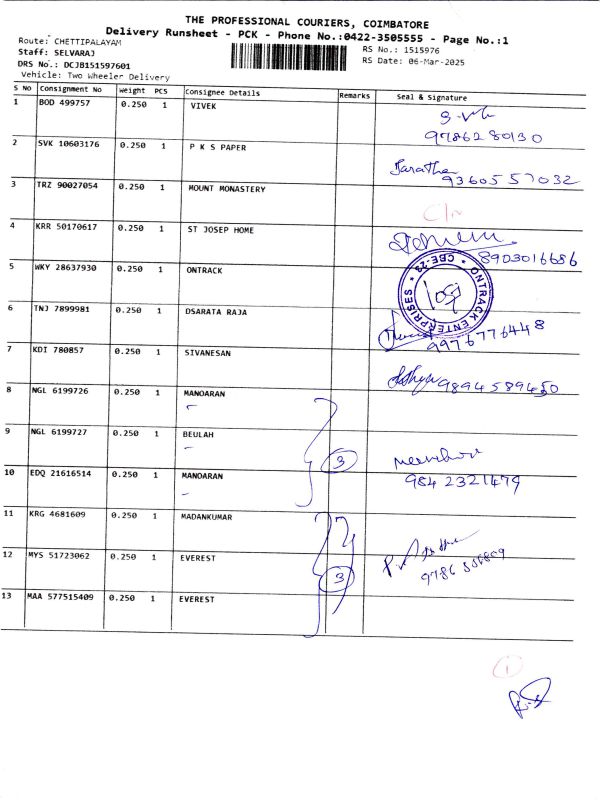 THE PROFESSIONAL COURIERS, COIMBATORE
Delivery Runsheet - PCK - Phone No.:0422-3505555 - Page No.:1
Route: CHETTIPALAYAM
Staff: SELVARAJ
DRS No.: DCJB151597601
Vehicle: Two Wheeler Delivery
RS No.: 1515976
RS Date: 06-Mar-2025
S No Consignment No Weight PCS Consignee Details Remarks Seal & Signature
1 BOD 499757 0.250 1 VIVEK
9786280130
2 SVK 10603176 0.250 1 P K S PAPER
9360557032
3 TRZ 90027054 0.250 1 MOUNT MONASTERY
4 KRR 50170617 0.250 1 ST JOSEP HOME
8903016686
5 WKY 28637930 0.250 1 ONTRACK
ONTRACK ENTERPRISES * CBE-23 *
6 TNJ 7899981 0.250 1 DSARATA RAJA
9976776448
7 KDI 780857 0.250 1 SIVANESAN
9894589450
8 NGL 6199726 0.250 1 MANOARAN
9 NGL 6199727 0.250 1 BEULAH
3
10 EDQ 21616514 0.250 1 MANOARAN
9842321479
11 KRG 4681609 0.250 1 MADANKUMAR
12 MYS 51723062 0.250 1 EVEREST
3
13 MAA 577515409 0.250 1 EVEREST
1